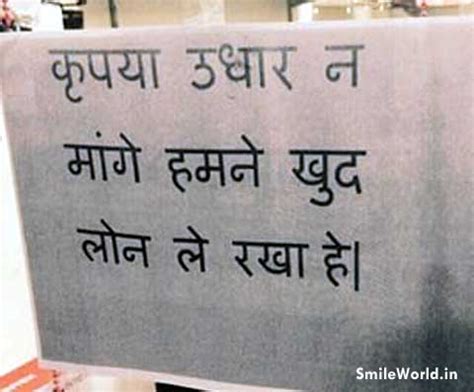 कृपया उधार न
मांगे हमने खुद
लोन ले रखा हे|
SmileWorld.in